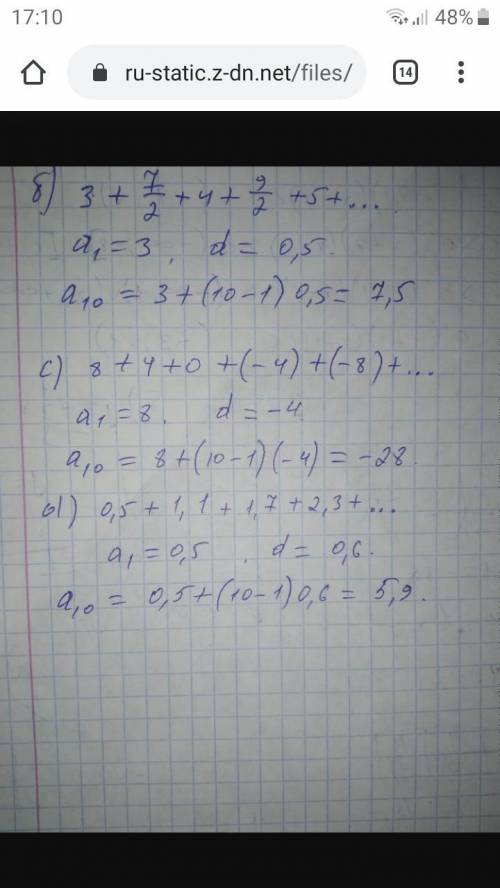 17:10 48%
ru-static.z-dn.net/files/ 14
б) 3 + 7/2 + 4 + 9/2 + 5 + ...
a₁ = 3, d = 0,5.
a₁₀ = 3 + (10 - 1) 0,5 = 7,5
c) 8 + 4 + 0 + (-4) + (-8) + ...
a₁ = 8, d = -4
a₁₀ = 8 + (10 - 1)(-4) = -28.
d) 0,5 + 1,1 + 1,7 + 2,3 + ...
a₁ = 0,5, d = 0,6.
a₁₀ = 0,5 + (10 - 1) 0,6 = 5,9.